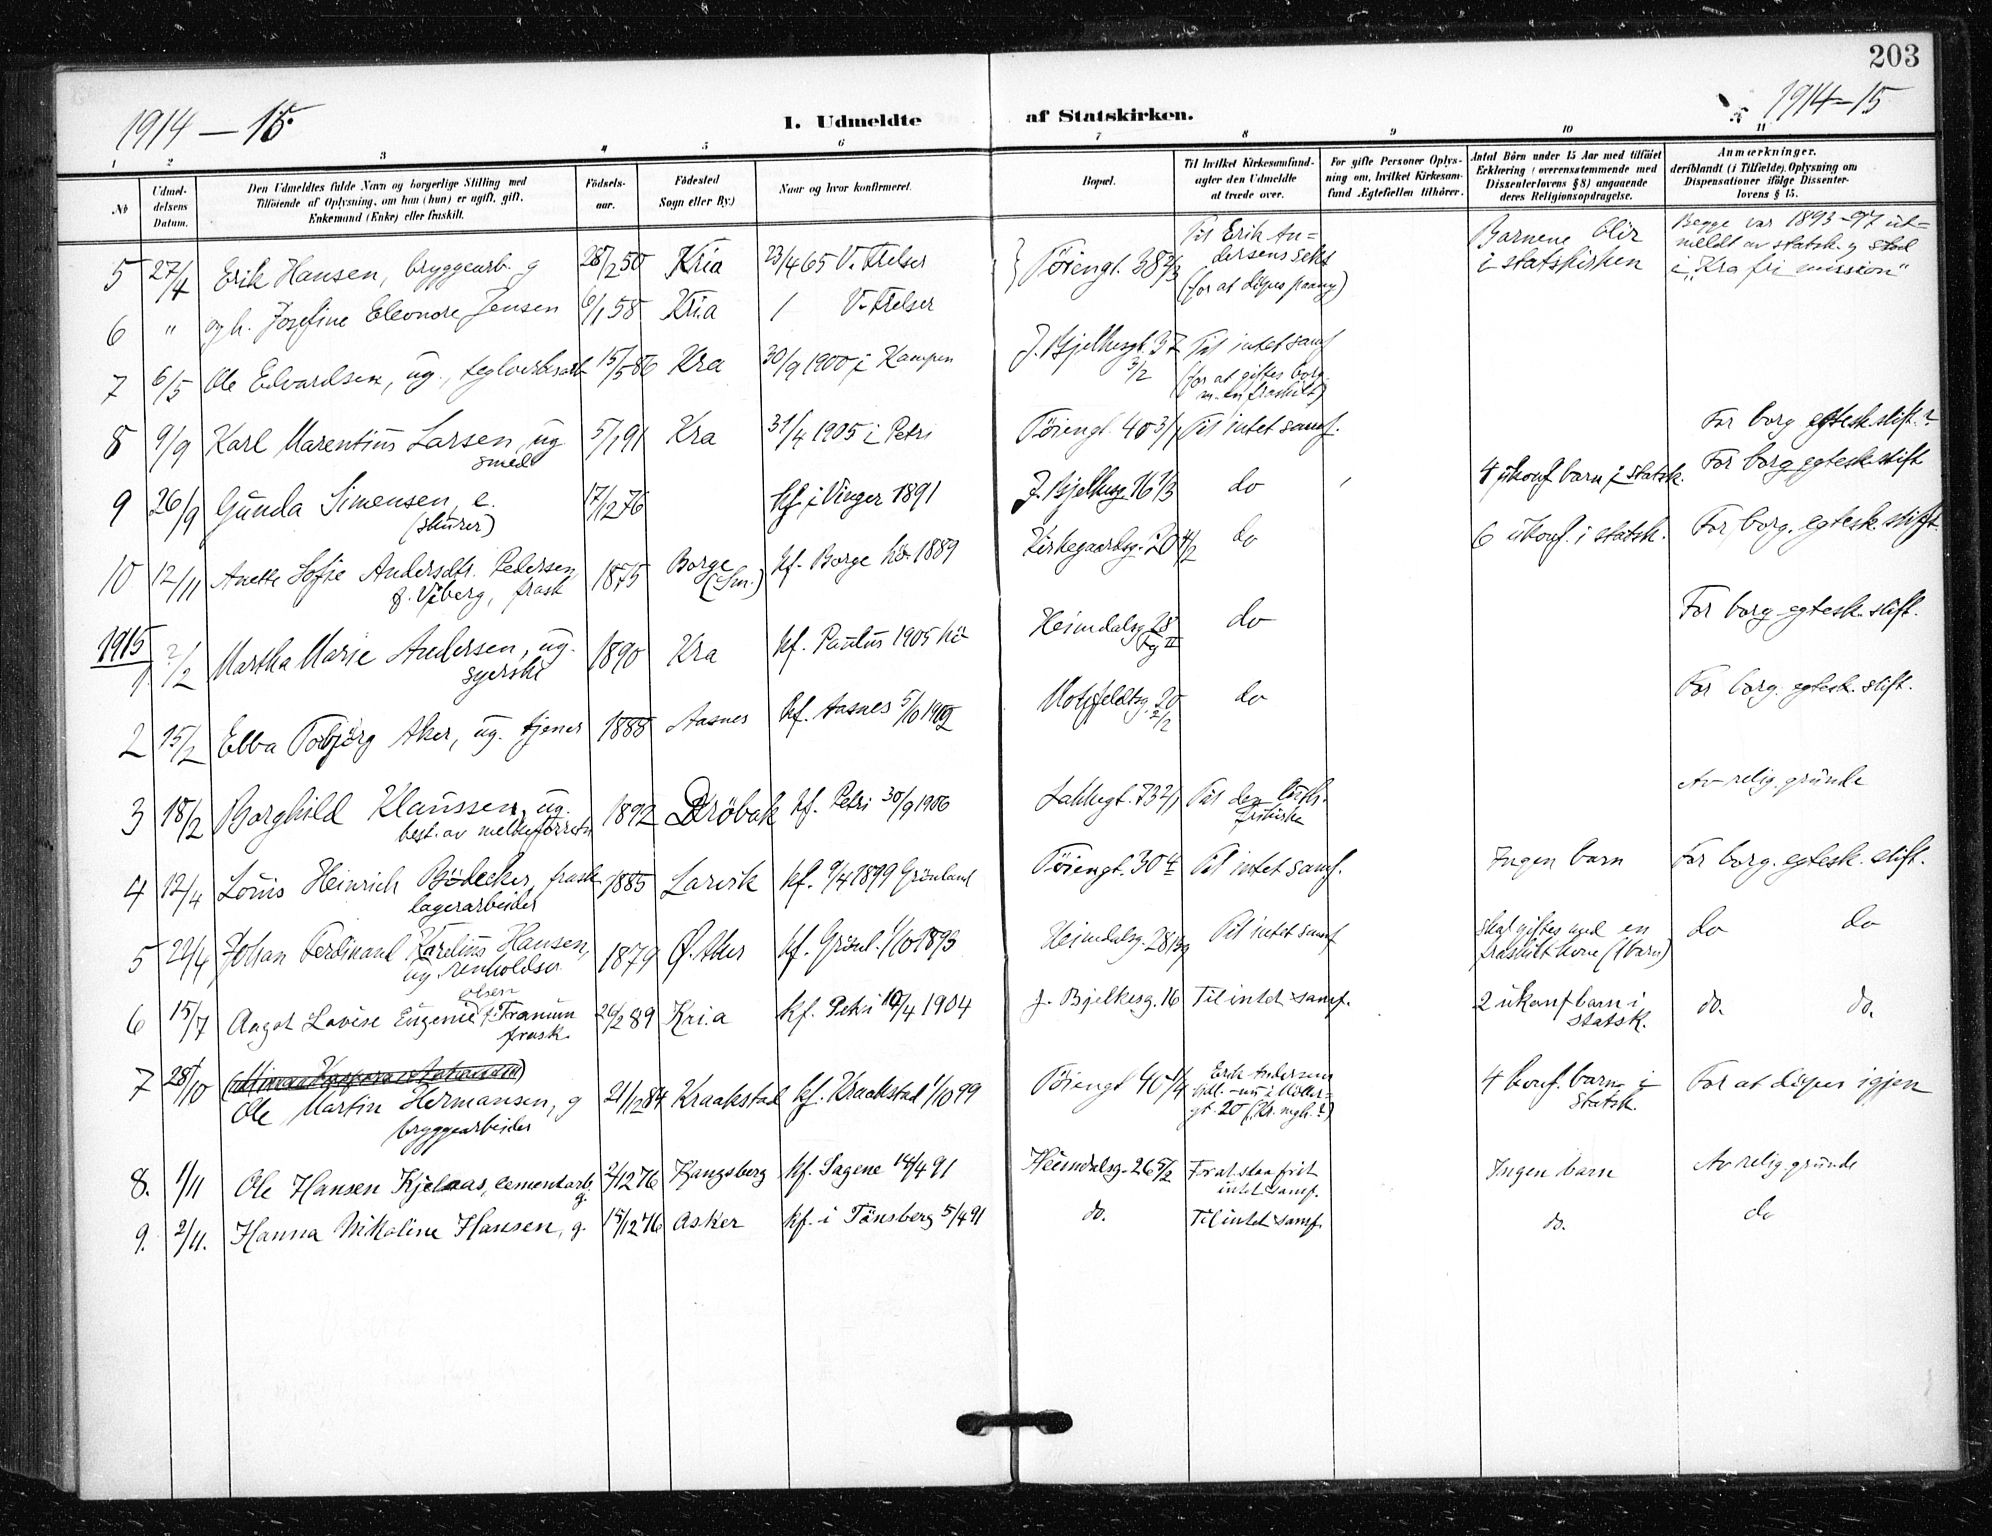 203
1914 – 15.
I. Udmeldte af Statskirken.
1914–15
1 2 3 4 5 6 7 8 9 10 11
№
Udmeldelsens Datum.
Den Udmeldtes fulde Navn og borgerlige Stilling med
Tilføiende af Oplysning, om han (hun) er ugift, gift,
Enkemand (Enke) eller fraskilt.
Fødselsaar.
Fødested
Sogn eller By)
Naar og hvor konfirmeret.
Bopæl.
Til hvilket Kirkesamfund
agter den Udmeldte
at træde over.
For gifte Personer Oplysning
om, hvilket Kirkesamfund
Ægtefællen tilhører.
Antal Børn under 15 Aar med tilføiet
Erklæring (overensstemmende med
Dissenterlovens § 8) angaaende
deres Religionsopdragelse.
Anmærkninger.
deriblandt (i Tilfælde) Oplysning om
Dispensationer ifølge Dissenterlovens § 15.
5 27/4 Erik Hansen, bryggearb. g 28/2 50 Kria 23/4 65 V. Frelser Töiengt. 38 2/3 Til Erik Andersens sekt (for at döpes paany) Barnene blir i statskirken Begge var 1893–97 utmeldt av statsk. g stod i "Kra fri mission"
6 " og h. Josefine Eleonore Jensen 6/1 58 Kria / V. Frelser
7 6/5 Ole Edvardsen, ug., teglverksarb 15/5 86 Kra 30/9 1900 i Kampen J. Bjelkesgt. 37 3/2 Til intet samf (for at giftes borg. m. en fraskilt)
8 9/9 Karl Marentius Larsen, ug smed 5/1 91 Kra 31/4 1905 i Petri Töiengt. 40 3/1 Til intet samf. For borg egtesk.stift.
9 26/9 Gunda Simensen, e. (skurer) 17/12 76 kf. i Vinger 1891 J. Bjelkesg. 16 1/3 do 4 ukonf barn i statsk. For borg egtesk.stift
10 12/11 Anette Sofie Andersdtr. Pedersen, f. Viberg, frask 1875 Borge (Sm.) kf. Borge hö 1889 Kirkegaardsg. 20 4/2 do 6 ukonf. i statsk. For borg. egtesk.stift.
1915
1. 2/2 Martha Marie Andersen, ug. syerske 1890 Kra kf. Paulus 1905 hö Heimdalsg. 28 Fg II do For borg. egtesk. stift.
2 15/2 Ebba Tobjörg Aker, ug. tjener 1888 Aasnes kf. Aasnes 5/10 1902 Motzfeldtsg. 20 2/2 do For borg. egtesk. stift.
3 18/2 Borghild Klaussen, ug. best. av melkeforretn 1892 Dröbak kf. Petri 30/9 1906 Lakkegt. 73 2/1 Til den luth. frikirke Av relig. grunde
4 12/4 Louis Heinrich Bödecker, frask. lagerarbeider 1885 Larvik kf. 9/4 1899 Grönland Töiengt. 30 Til intet samf. Ingen barn For borg. egtesk. stift.
5 22/4 Johan Ferdinand Karelius Hansen, ug renholdsm 1879 Ø. Aker kf. Grönl. 1/10 1893 Heimdalsg. 28 Til intet samf Skal giftes med en fraskilt kone (1 barn) do do
6 15/7 Aagot Lovise Eugenie Olsen f. Franum frask. 26/2 89 Kri.a kf. Petri 10/4 1904 J. Bjelkesg. 16 Til intet samf. 2 ukonf barn i statsk. do. do.
7 28/10 Ole Martin Hermansen, g bryggearbeider 21/12 84 Kraakstad kf. Kraakstad 1/10 99 Töiengt 40 1/4 Erik Andersens gt. 20 4 konf. barn i statsk. For at döpes igjen
8. 1/11 Ole Hansen Kjelaas, cementarb. g. 2/12 76 Kongsberg kf. Sagene 14/4 91 Heimdalsg. 26 5/2 For at staa frit intet samf. Ingen barn Av relig. grunde
9. 2/11. Hanna Nikoline Hansen, g. 15/12 76 Asker kf. i Tönsberg 5/4 91 do. Til intet samf. do. do